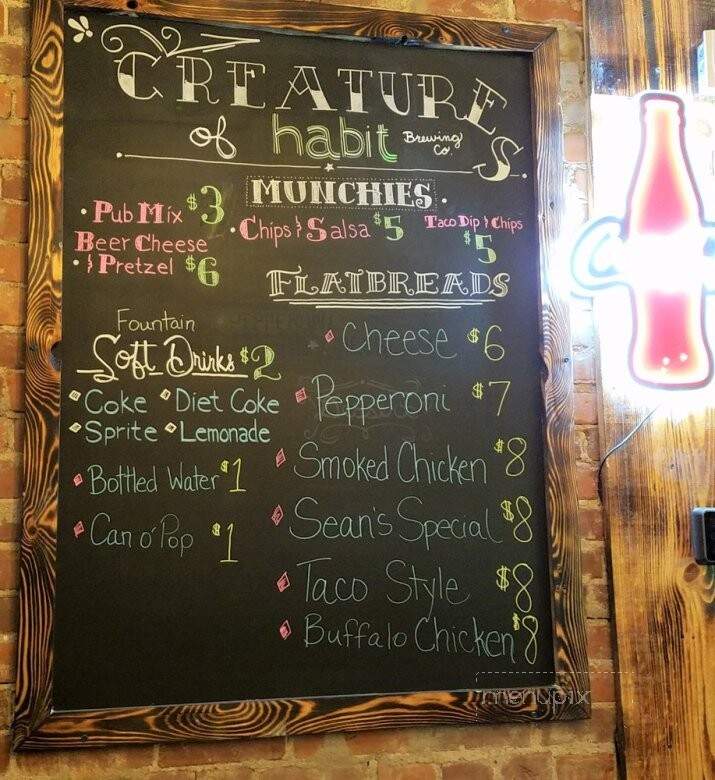 CREATURES
of habit Brewing Co.
MUNCHIES
Pub Mix $3
Chips & Salsa $5
Taco Dip & Chips $5
Beer Cheese
& Pretzel $6
FLATBREADS
Cheese $6
Pepperoni $7
Smoked Chicken $8
Sean's Special $8
Taco Style $8
Buffalo Chicken $8
Fountain
Soft Drinks $2
Coke Diet Coke
Sprite Lemonade
Bottled Water $1
Can o' Pop $1
menupix